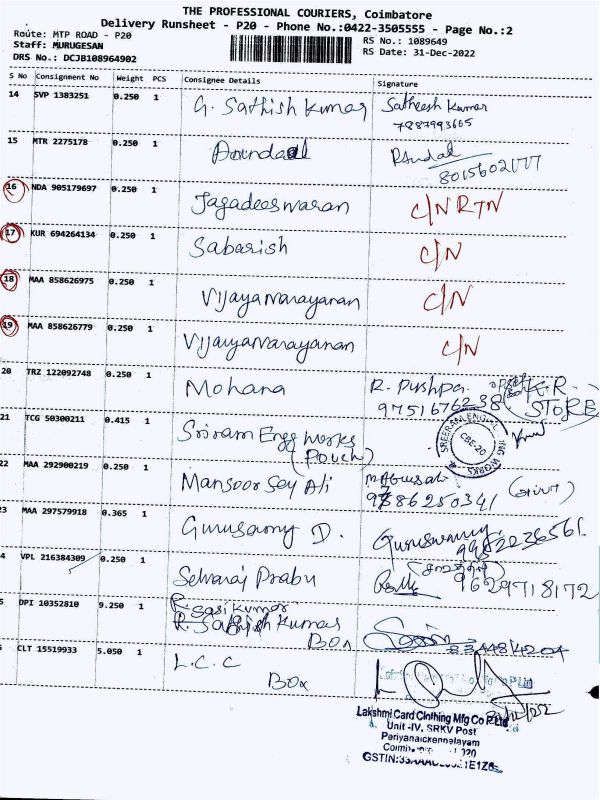 THE PROFESSIONAL COURIERS, Coimbatore
Delivery Runsheet - P20 - Phone No.:0422-3505555 - Page No.:2
Route: MTP ROAD - P20
RS No.: 1089649
Staff: MURUGESAN
RS Date: 31-Dec-2022
DRS No.: DCJB108964902
S No Consignment No Weight PCS Consignee Details Signature
14 SVP 1383251 0.250 1 G. Sathish Kumar Satheesh Kumar
7887993605
15 MTR 2275178 0.250 1
16 NDA 905179697 0.250 1 Jagadeeswaran C/N RTN
17 KUR 694264134 0.250 1 Sabarish C/N
18 MAA 858626975 0.250 1 Vijayanarayanan C/N
19 MAA 858626779 0.250 1 Vijayanarayanan C/N
20 TRZ 122092748 0.250 1 Mohana R. Pushpa K.R.
9751676238 STORE
21 TCG 50300211 0.415 1 Sriram Engg Works
(Pouch)
SREERAM ENGINEERING WORKS CBE-20
22 MAA 292900219 0.250 1 Mansoor Sey Ali
9786250341
3 MAA 297579918 0.365 1 Gurusamy D. Guruswamy
9952236561
4 VPL 216384309 0.250 1 Selvaraj Prabu
9629718172
5 DPI 10352810 9.250 1 R. Sasi Kumar
R. Sathish Kumar
Box
CLT 15519933 5.050 1 L.C.C
Box
Lakshmi Card Clothing Mfg Co P Ltd
Unit -IV, SRKV Post
Periyanaickenpalayam